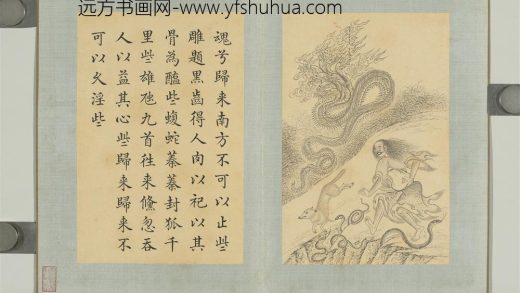 远方书画网- www.yfshuhua.com
魂兮歸來南方不可以止些
雕題黑齒得人肉以祀以其
骨為醢些蝮蛇蓁蓁封狐千
里些雄虺九首往來儵忽吞
人以益其心些歸來歸來不
可以久淫些